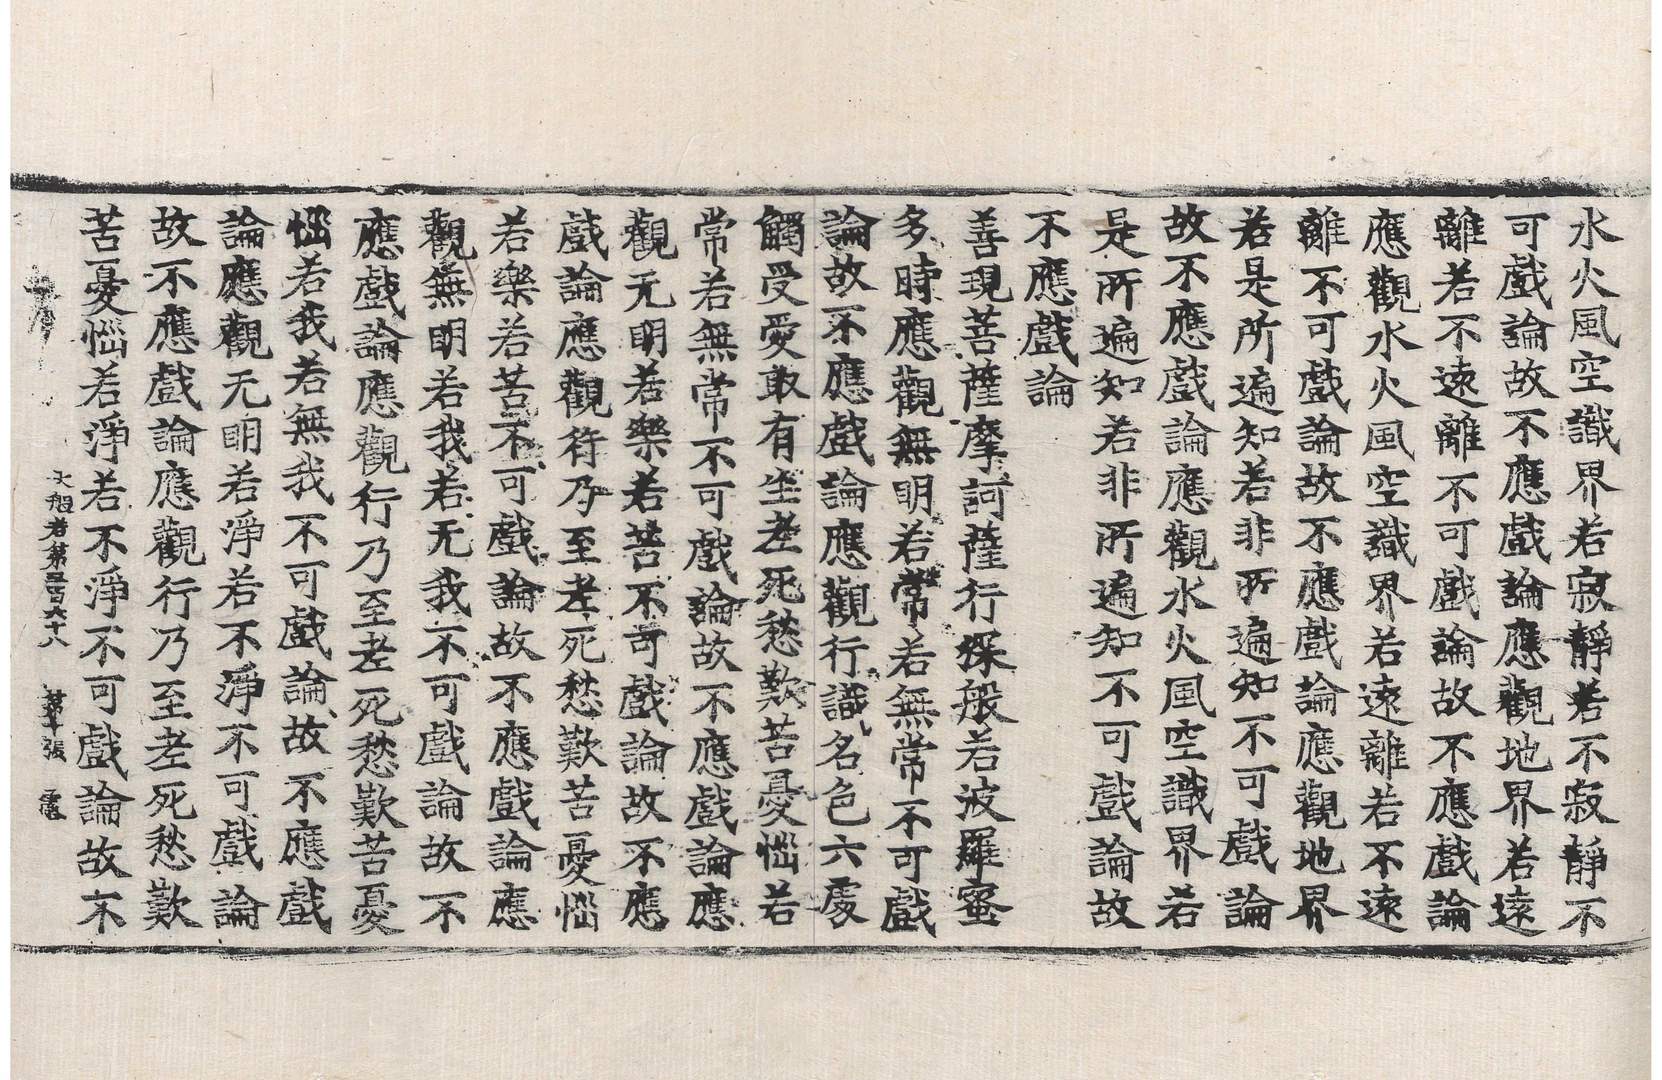 水火風空識界若寂靜若不寂靜不
可戲論故不應戲論應觀地界若遠
離若不遠離不可戲論故不應戲論
應觀水火風空識界若遠離若不遠
離不可戲論故不應戲論應觀地界
若是所遍知若非所遍知不可戲論
故不應戲論應觀水火風空識界若
是所遍知若非所遍知不可戲論故
不應戲論
善現菩薩摩訶薩行深般若波羅蜜
多時應觀無明若常若無常不可戲
論故不應戲論應觀行識名色六處
觸受愛取有生老死愁歎苦憂惱若
常若無常不可戲論故不應戲論應
觀无明若樂若苦不可戲論故不應
戲論應觀行乃至老死愁歎苦憂惱
若樂若苦不可戲論故不應戲論應
觀無明若我若无我不可戲論故不
應戲論應觀行乃至老死愁歎苦憂
惱若我若無我不可戲論故不應戲
論應觀无明若淨若不淨不可戲論
故不應戲論應觀行乃至老死愁歎
苦憂惱若淨若不淨不可戲論故不
大般若第三百六十八 第十張